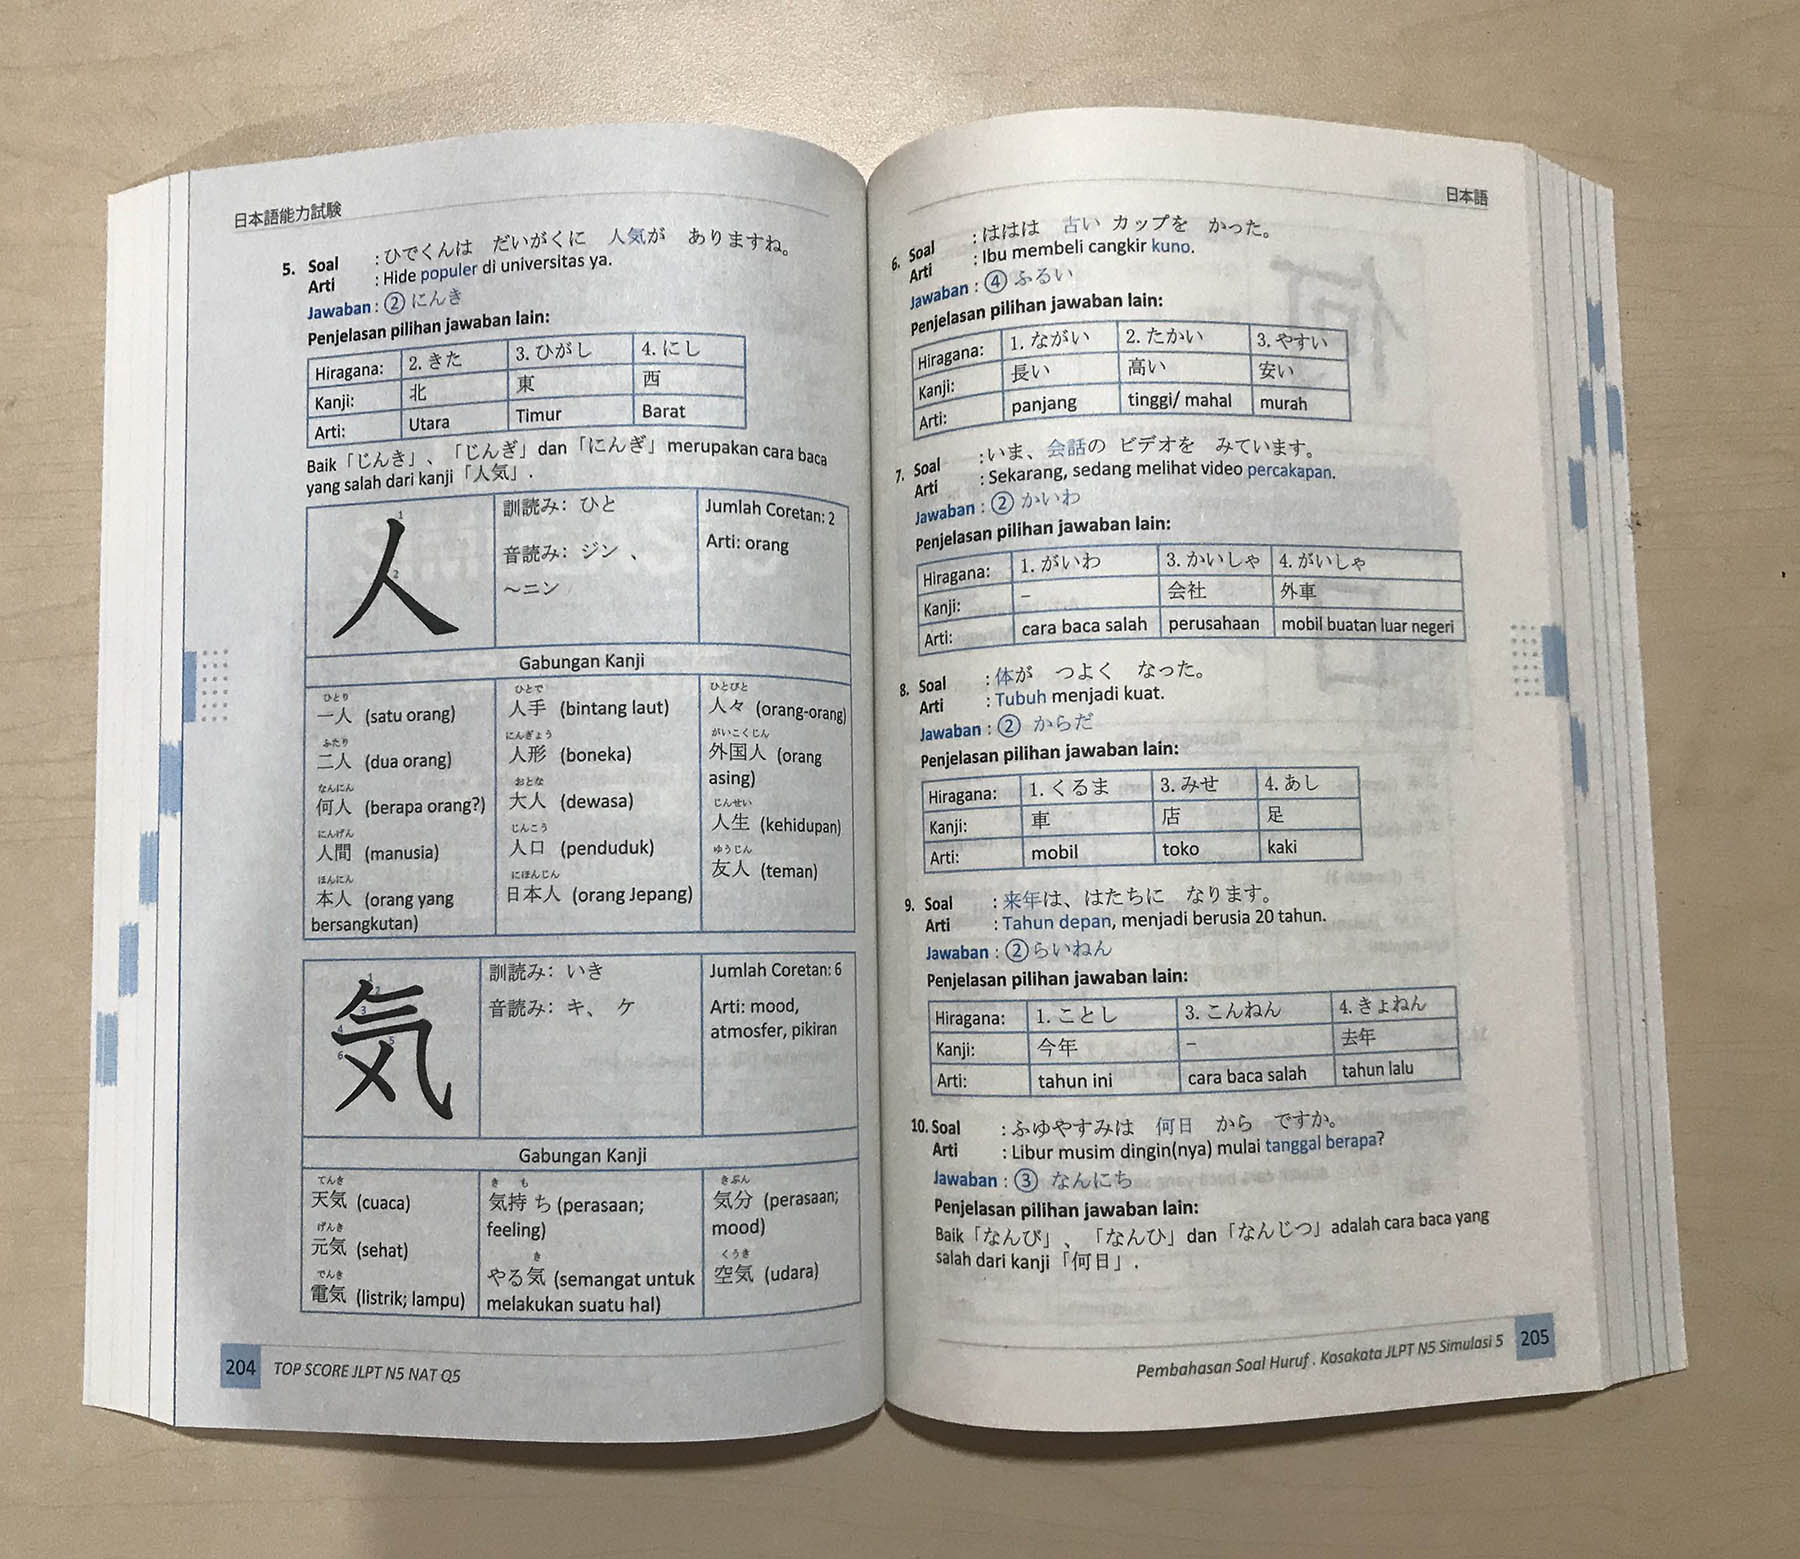 日本語能力試験
5. Soal : ひでくんは だいがくに 人気が ありますね。
Arti : Hide populer di universitas ya.
Jawaban : ② にんき
Penjelasan pilihan jawaban lain:
Hiragana: 2. きた 3. ひがし 4. にし
Kanji: 北 東 西
Arti: Utara Timur Barat
Baik「じんき」、「じんぎ」dan「にんぎ」merupakan cara baca
yang salah dari kanji「人気」.
人
1
2
訓読み: ひと
音読み: ジン 、
～ニン
Jumlah Coretan: 2
Arti: orang
Gabungan Kanji
ひとり
一人 (satu orang)
ふたり
二人 (dua orang)
なんにん
何人 (berapa orang?)
にんげん
人間 (manusia)
ほんにん
本人 (orang yang
bersangkutan)
ひとで
人手 (bintang laut)
にんぎょう
人形 (boneka)
おとな
大人 (dewasa)
じんこう
人口 (penduduk)
にほんじん
日本人 (orang Jepang)
ひとびと
人々 (orang-orang)
がいこくじん
外国人 (orang
asing)
じんせい
人生 (kehidupan)
ゆうじん
友人 (teman)
気
1
2
3
4
5
6
訓読み: いき
音読み: キ、 ケ
Jumlah Coretan: 6
Arti: mood,
atmosfer, pikiran
Gabungan Kanji
てんき
天気 (cuaca)
げんき
元気 (sehat)
でんき
電気 (listrik; lampu)
き も
気持 ち (perasaan;
feeling)
き
やる気 (semangat untuk
melakukan suatu hal)
きぶん
気分 (perasaan;
mood)
くうき
空気 (udara)
204 TOP SCORE JLPT N5 NAT Q5
日本語
6. Soal : ははは 古い カップを かった。
Arti : Ibu membeli cangkir kuno.
Jawaban : ④ ふるい
Penjelasan pilihan jawaban lain:
Hiragana: 1. ながい 2. たかい 3. やすい
Kanji: 長い 高い 安い
Arti: panjang tinggi/ mahal murah
7. Soal : いま、会話の ビデオを みています。
Arti : Sekarang, sedang melihat video percakapan.
Jawaban : ② かいわ
Penjelasan pilihan jawaban lain:
Hiragana: 1. がいわ 3. かいしゃ 4. がいしゃ
Kanji: – 会社 外車
Arti: cara baca salah perusahaan mobil buatan luar negeri
8. Soal : 体が つよく なった。
Arti : Tubuh menjadi kuat.
Jawaban : ② からだ
Penjelasan pilihan jawaban lain:
Hiragana: 1. くるま 3. みせ 4. あし
Kanji: 車 店 足
Arti: mobil toko kaki
9. Soal : 来年は、はたちに なります。
Arti : Tahun depan, menjadi berusia 20 tahun.
Jawaban : ② らいねん
Penjelasan pilihan jawaban lain:
Hiragana: 1. ことし 3. こんねん 4. きょねん
Kanji: 今年 – 去年
Arti: tahun ini cara baca salah tahun lalu
10. Soal : ふゆやすみは 何日 から ですか。
Arti : Libur musim dingin(nya) mulai tanggal berapa?
Jawaban : ③ なんにち
Penjelasan pilihan jawaban lain:
Baik「なんび」、「なんひ」dan「なんじつ」adalah cara baca yang
salah dari kanji「何日」.
Pembahasan Soal Huruf . Kosakata JLPT N5 Simulasi 5 205